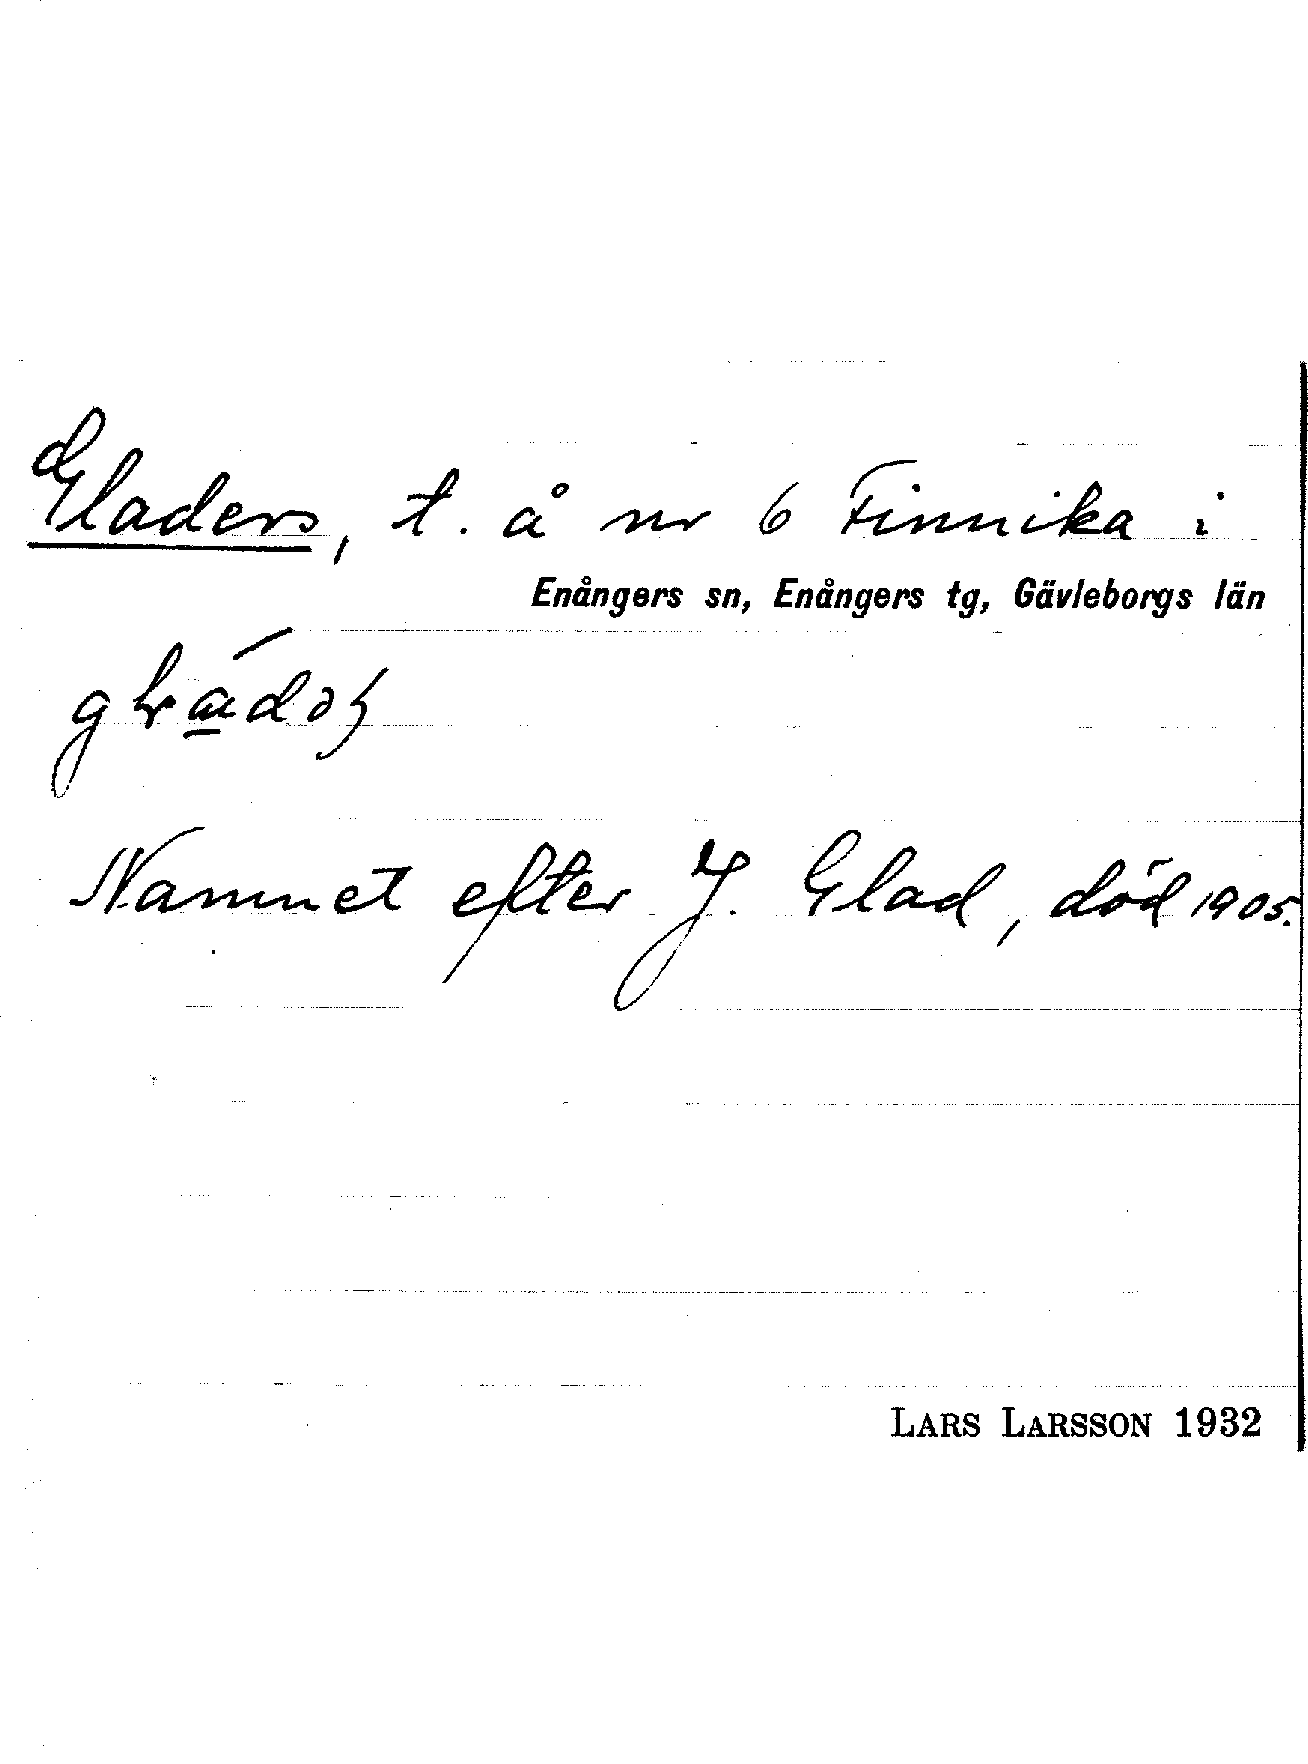 Gladers, t. å nr 6 Finnika i
Enångers sn, Enångers tg, Gävleborgs län
Namnet efter J. Glad, död 1905.
LARS LARSSON 1932